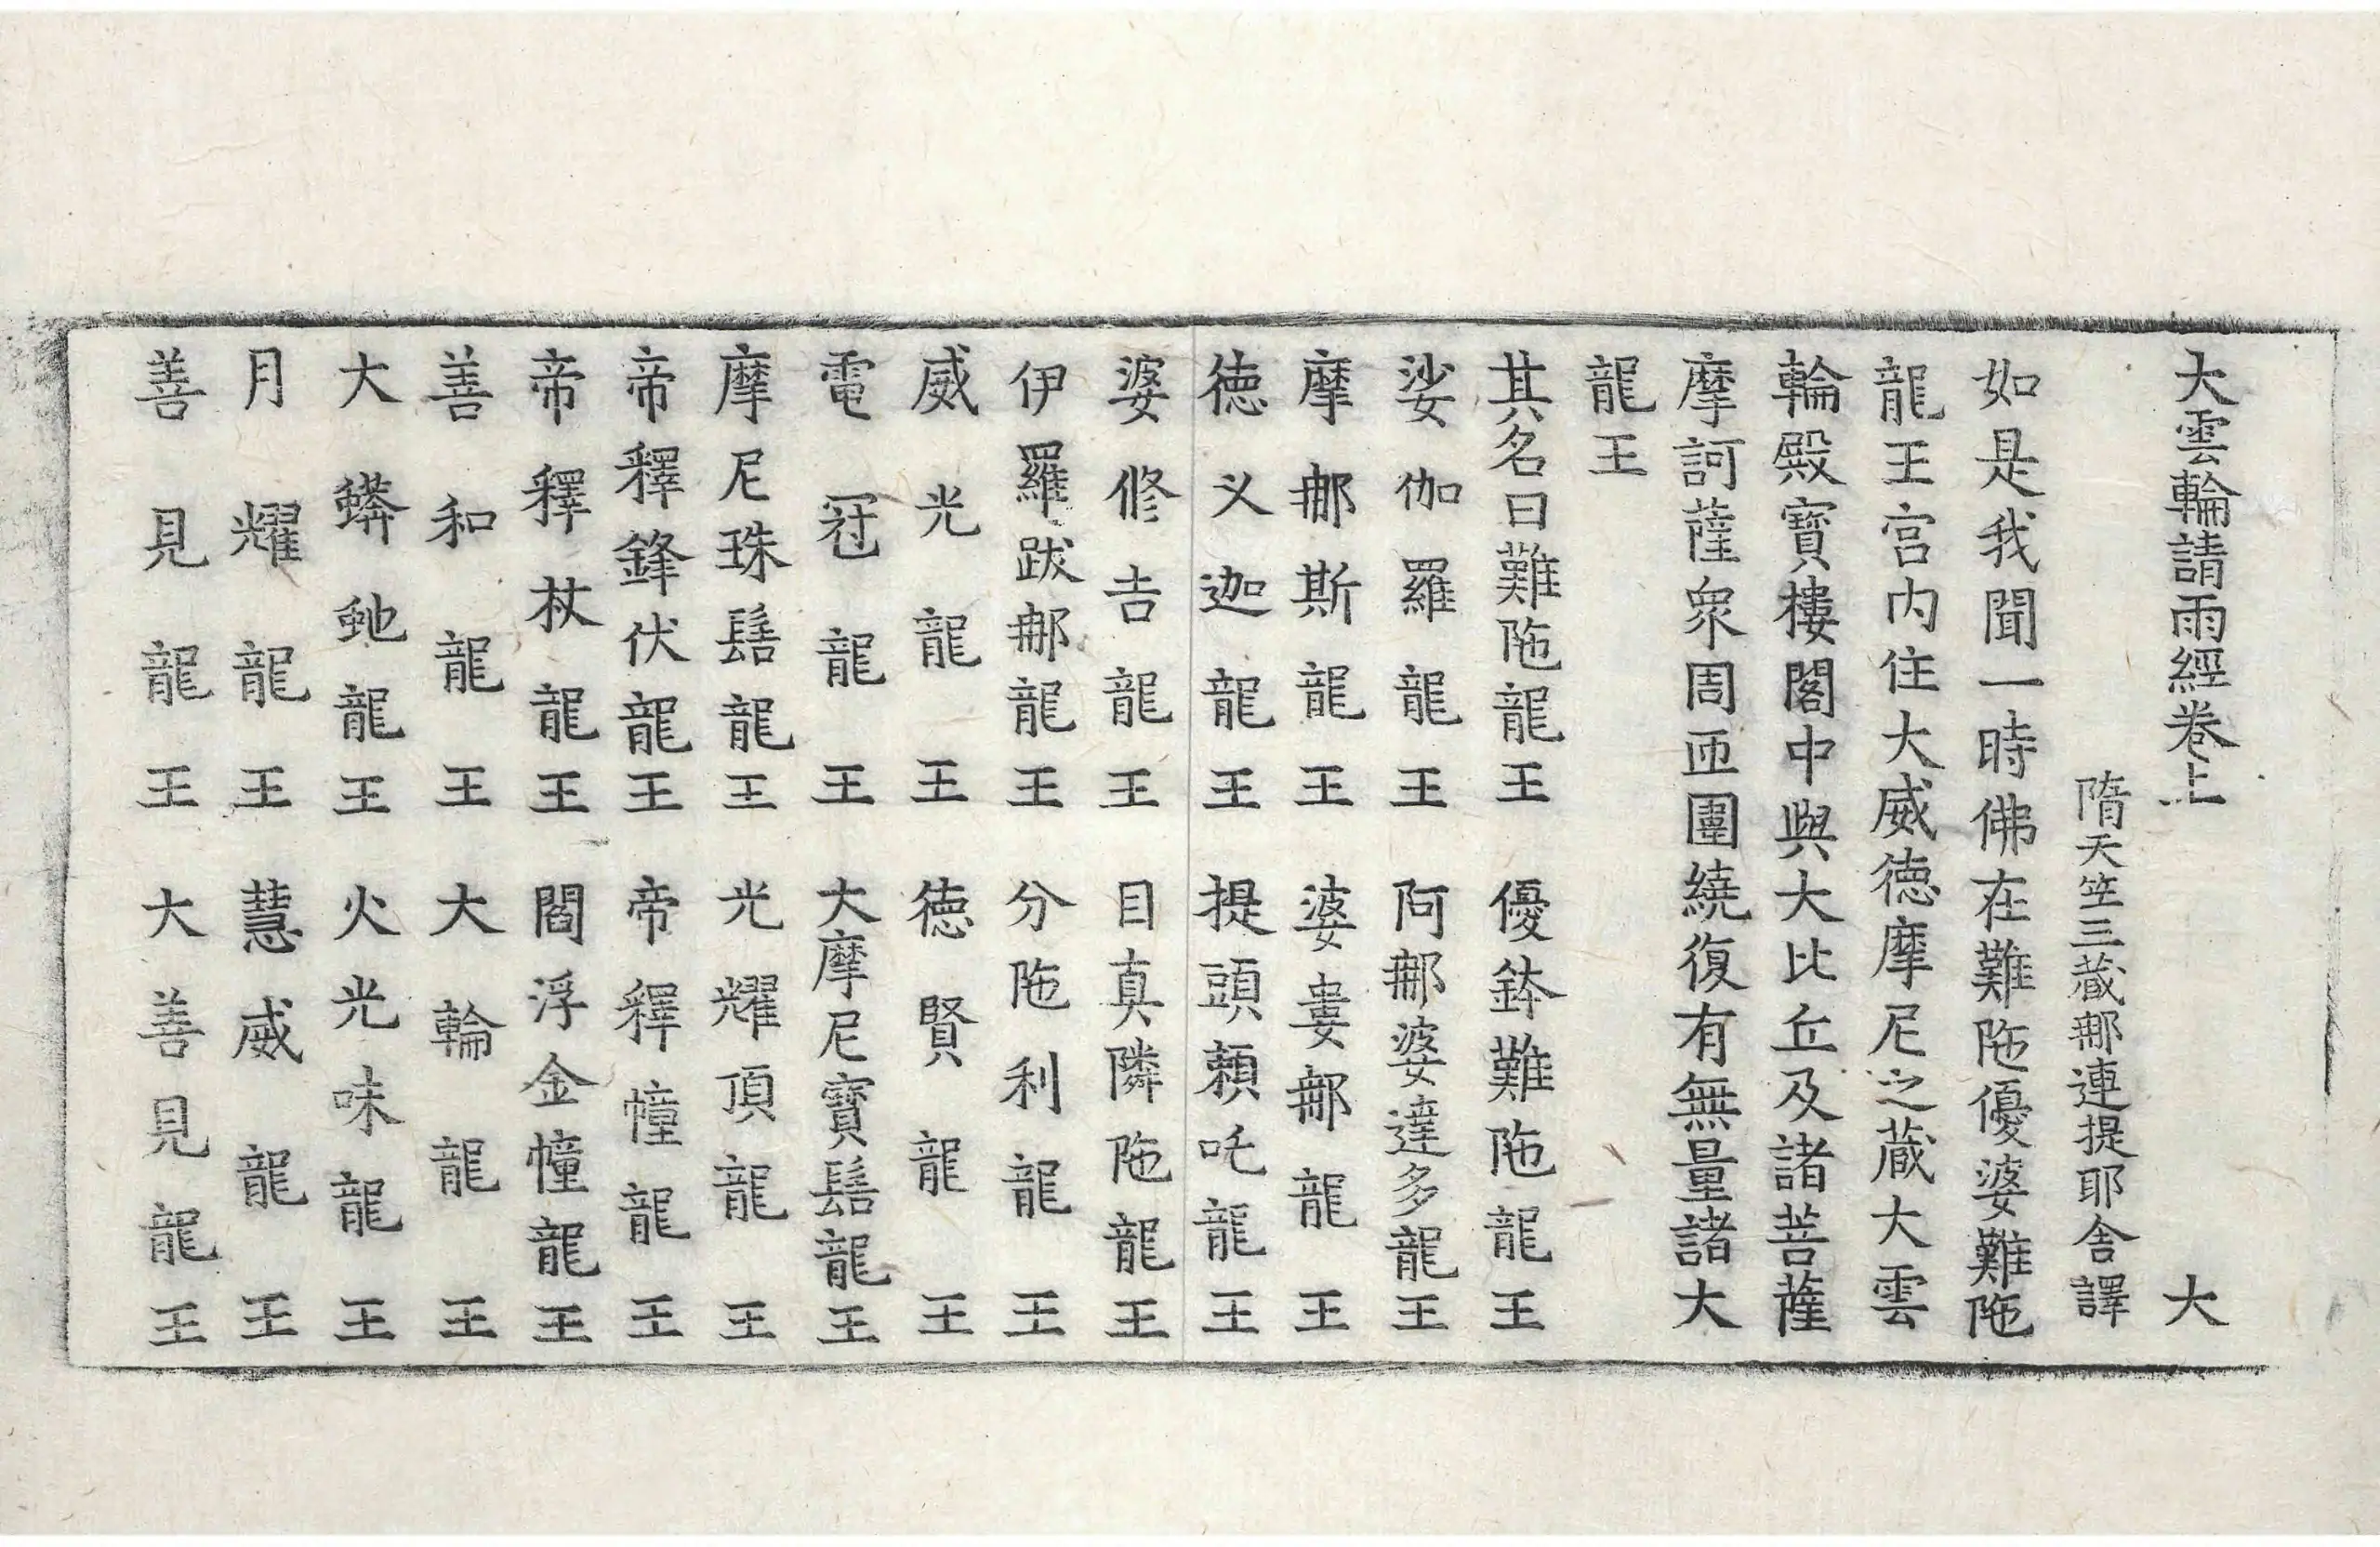 大雲輪請雨經卷上　大
隋天竺三藏那連提耶舍譯
如是我聞一時佛在難陁優婆難陁
龍王宮内住大威德摩尼之藏大雲
輪殿寶樓閣中與大比丘及諸菩薩
摩訶薩衆周匝圍繞復有無量諸大
龍王
其名曰難陁龍王　優鉢難陁龍王
娑伽羅龍王　阿那婆達多龍王
摩那斯龍王　婆婁那龍王
德义迦龍王　提頭頼吒龍王
婆修吉龍王　目真隣陁龍王
伊羅跋那龍王　分陁利龍王
威光龍王　德賢龍王
電冠龍王　大摩尼寶髻龍王
摩尼珠髻龍王　光耀頂龍王
帝釋鋒伏龍王　帝釋幢龍王
帝釋杖龍王　閻浮金幢龍王
善和龍王　大輪龍王
大蟒虵龍王　火光味龍王
月耀龍王　慧威龍王
善見龍王　大善見龍王